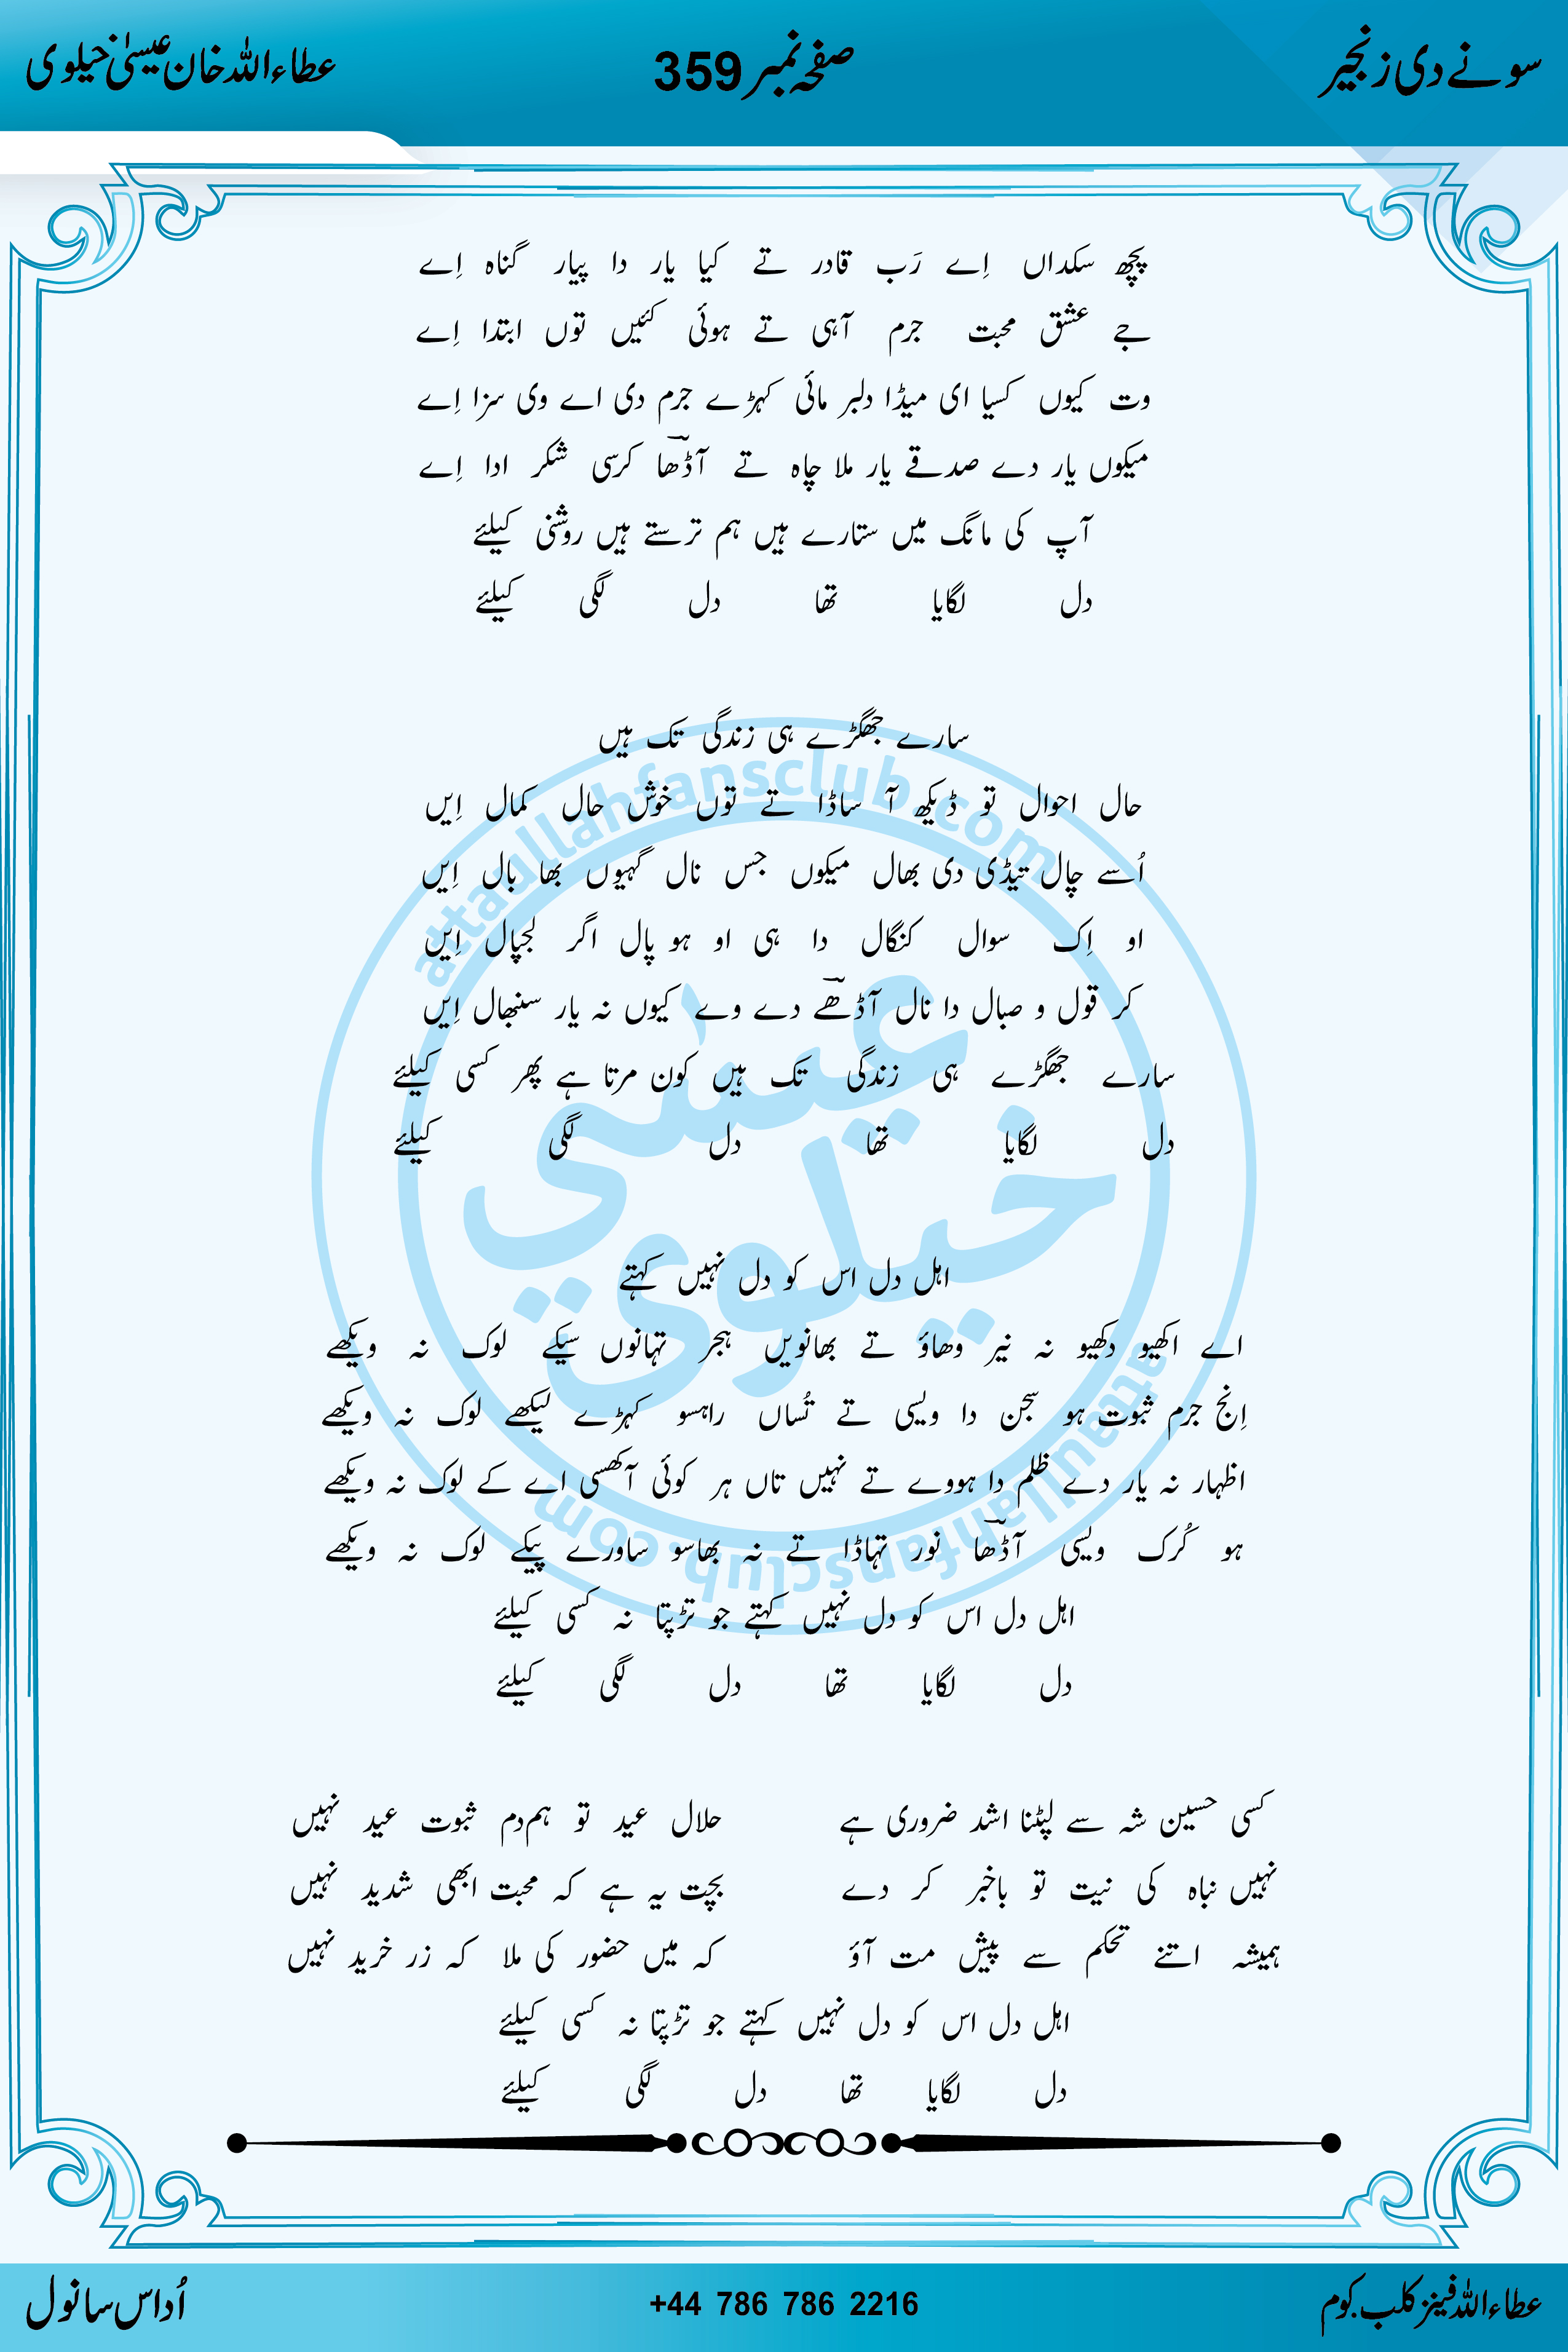 سونے دی زنجیر
صفحہ نمبر 359
عطاءاللہ خان عیسیٰ خیلوی
پچھ سکداں اِے رَب قادر تے کیا یار دا پیار گناہ اِے
جے عشق محبت جرم آہی تے ہوئی کئیں توں ابتدا اِے
وت کیوں کسیا ای میڈا دلبر مائی کہڑے جرم دی اے وی سزا اِے
میکوں یار دے صدقے یار ملا چاہ تے آڈھا کرسی شکر ادا اِے
آپ کی مانگ میں ستارے ہیں ہم ترستے ہیں روشنی کیلئے
دل لگایا تھا دل لگی کیلئے
سارے جھگڑے ہی زندگی تک ہیں
حال احوال تو ڈیکھ آ ساڈا تے توں خوش حال کمال اِیں
اُسے چال تیڈی دی بھال میکوں جس نال گہیوں بھا بال اِیں
او اِک سوال کنگال دا ہی او ہو پال اگر لجپال اِیں
کر قول و صبال دا نال آڈھے دے وے کیوں نہ یار سنبھال اِیں
سارے جھگڑے ہی زندگی تک ہیں کون مرتا ہے پھر کسی کیلئے
دل لگایا تھا دل لگی کیلئے
اہل دل اس کو دل نہیں کہتے
اے اکھیو دکھیو نہ نیر وھاؤ تے بھانویں ہجر تہانوں سیکے لوک نہ ویکھے
اِنج جرم ثبوت ہو سجن دا ویسی تے تُساں راہسو کہڑے لیکھے لوک نہ ویکھے
اظہار نہ یار دے ظلم دا ہووے تے نہیں تاں ہر کوئی آکھسی اے کے لوک نہ ویکھے
ہو کُرک ویسی آڈھا نور تہاڈا تے نہ بھاسو ساورے پیکے لوک نہ ویکھے
اہل دل اس کو دل نہیں کہتے جو تڑپتا نہ کسی کیلئے
دل لگایا تھا دل لگی کیلئے
کسی حسین شہ سے لپٹنا اشد ضروری ہے حلال عید تو ہم‌دم ثبوت عید نہیں
نہیں نباہ کی نیت تو باخبر کر دے بچت یہ ہے کہ محبت ابھی شدید نہیں
ہمیشہ اتنے تحکم سے پیش مت آؤ کہ میں حضور کی ملا کہ زر خرید نہیں
اہل دل اس کو دل نہیں کہتے جو تڑپتا نہ کسی کیلئے
دل لگایا تھا دل لگی کیلئے
attaullahfansclub.com
عیسٰی
خیلوی
attaullahfansclub.com
عطاءاللہ فینز کلب.کوم
+44 786 786 2216
اُداس سانول